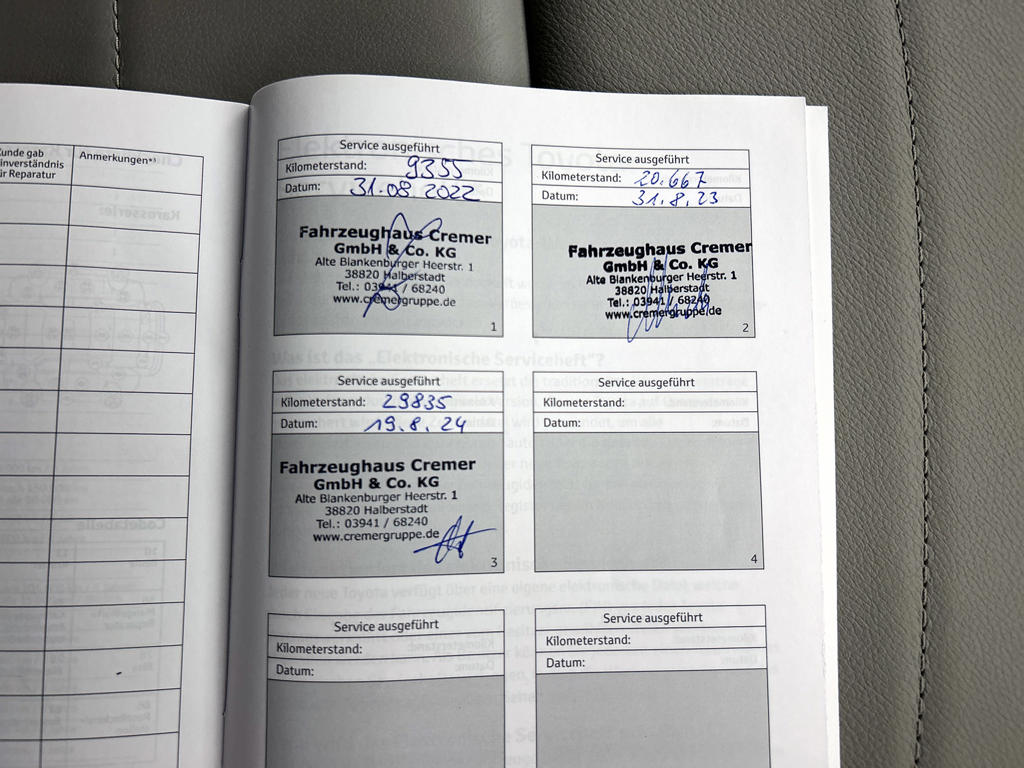 Kunde gab
inverständnis
ür Reparatur
Anmerkungen*⁾
Service ausgeführt
Kilometerstand: 9355
Datum: 31.08.2022
Fahrzeughaus Cremer
GmbH & Co. KG
Alte Blankenburger Heerstr. 1
38820 Halberstadt
Tel.: 03941 / 68240
www.cremergruppe.de
1
Service ausgeführt
Kilometerstand: 20.667
Datum: 31.8.23
Fahrzeughaus Cremer
GmbH & Co. KG
Alte Blankenburger Heerstr. 1
38820 Halberstadt
Tel.: 03941 / 68240
www.cremergruppe.de
2
Service ausgeführt
Kilometerstand: 29835
Datum: 19.8.24
Fahrzeughaus Cremer
GmbH & Co. KG
Alte Blankenburger Heerstr. 1
38820 Halberstadt
Tel.: 03941 / 68240
www.cremergruppe.de
3
Service ausgeführt
Kilometerstand:
Datum:
4
Service ausgeführt
Kilometerstand:
Datum:
Service ausgeführt
Kilometerstand:
Datum: